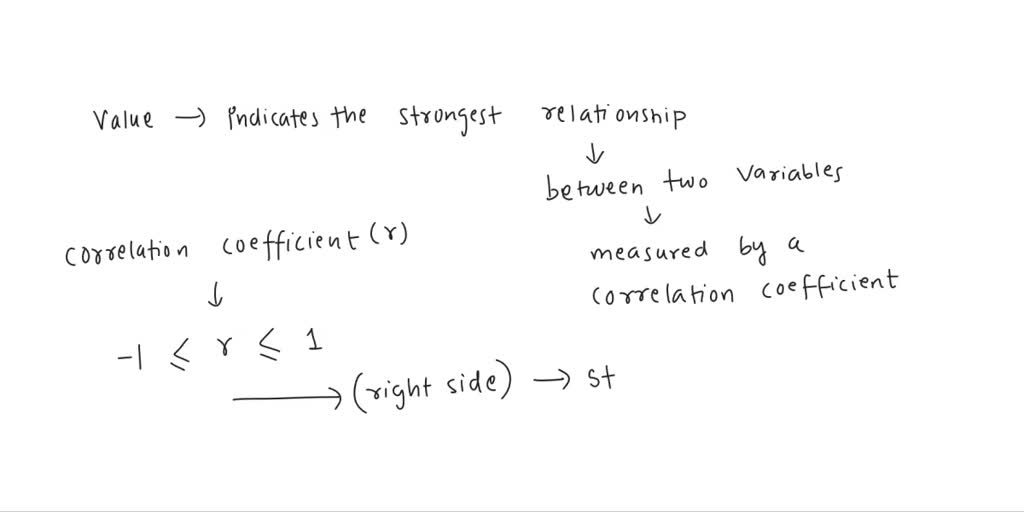 Value → indicates the strongest relationship
↓
between two variables
↓
measured by a
correlation coefficient
correlation coefficient (r)
↓
-1 ≤ r ≤ 1
→ (right side) → st